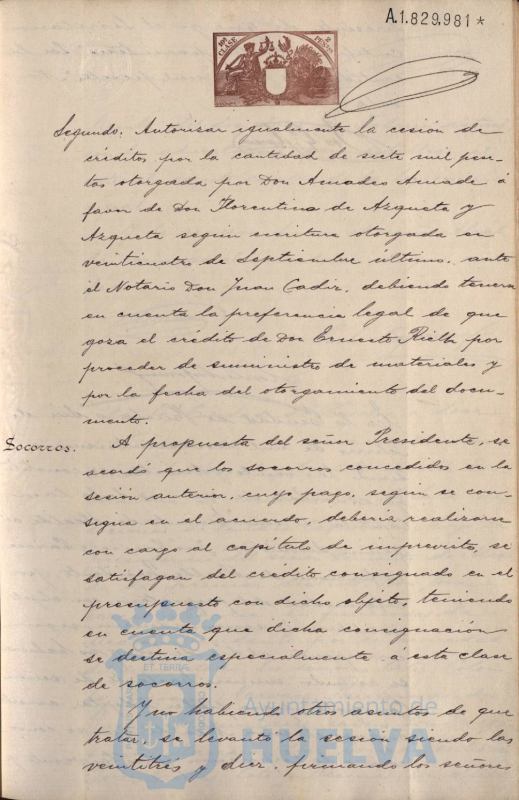 A.1.829.981*
10ª CLASE 2 PESETAS
Segundo. Autorizar igualmente la cesión de
créditos por la cantidad de siete mil pese-
tas otorgada por Don Amadeo Amade á
favor de Don Florentina de Azqueta y
Azqueta según escritura otorgada en
veinticuatro de Septiembre último, ante
el Notario Don Juan Cadiz, debiendo tenerse
en cuenta la preferencia legal de que
goza el crédito de Don Ernesto Rieth por
proceder de suministro de materiales y
por la fecha del otorgamiento del docu-
mento.
Socorros.
A propuesta del señor Presidente, se
acordó que los socorros concedidos en la
sesión anterior, cuyo pago, según se con-
signa en el acuerdo, debería realizarse
con cargo al capítulo de imprevisto, se
satisfagan del crédito consignado en el
presupuesto con dicho objeto, teniendo
en cuenta que dicha consignación
se destina especialmente á esta clase
de socorros.
Y no habiendo otros asuntos de que
tratar, se levantó la sesión siendo las
veintitrés y diez, firmando los señores
Ayuntamiento de
HUELVA